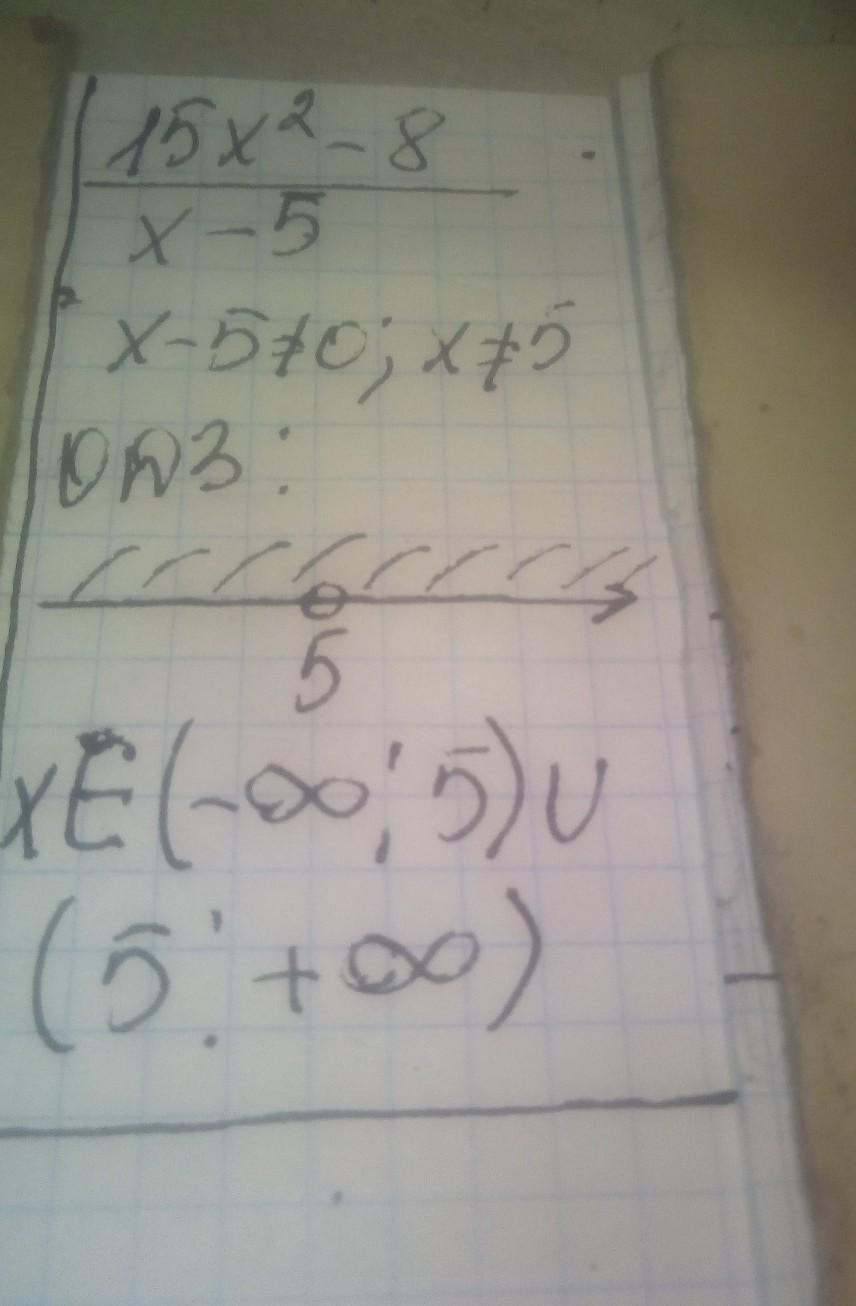 15x² - 8
x - 5
x - 5 ≠ 0; x ≠ 5
ОДЗ:
5
xE(-∞; 5) U
(5; +∞)